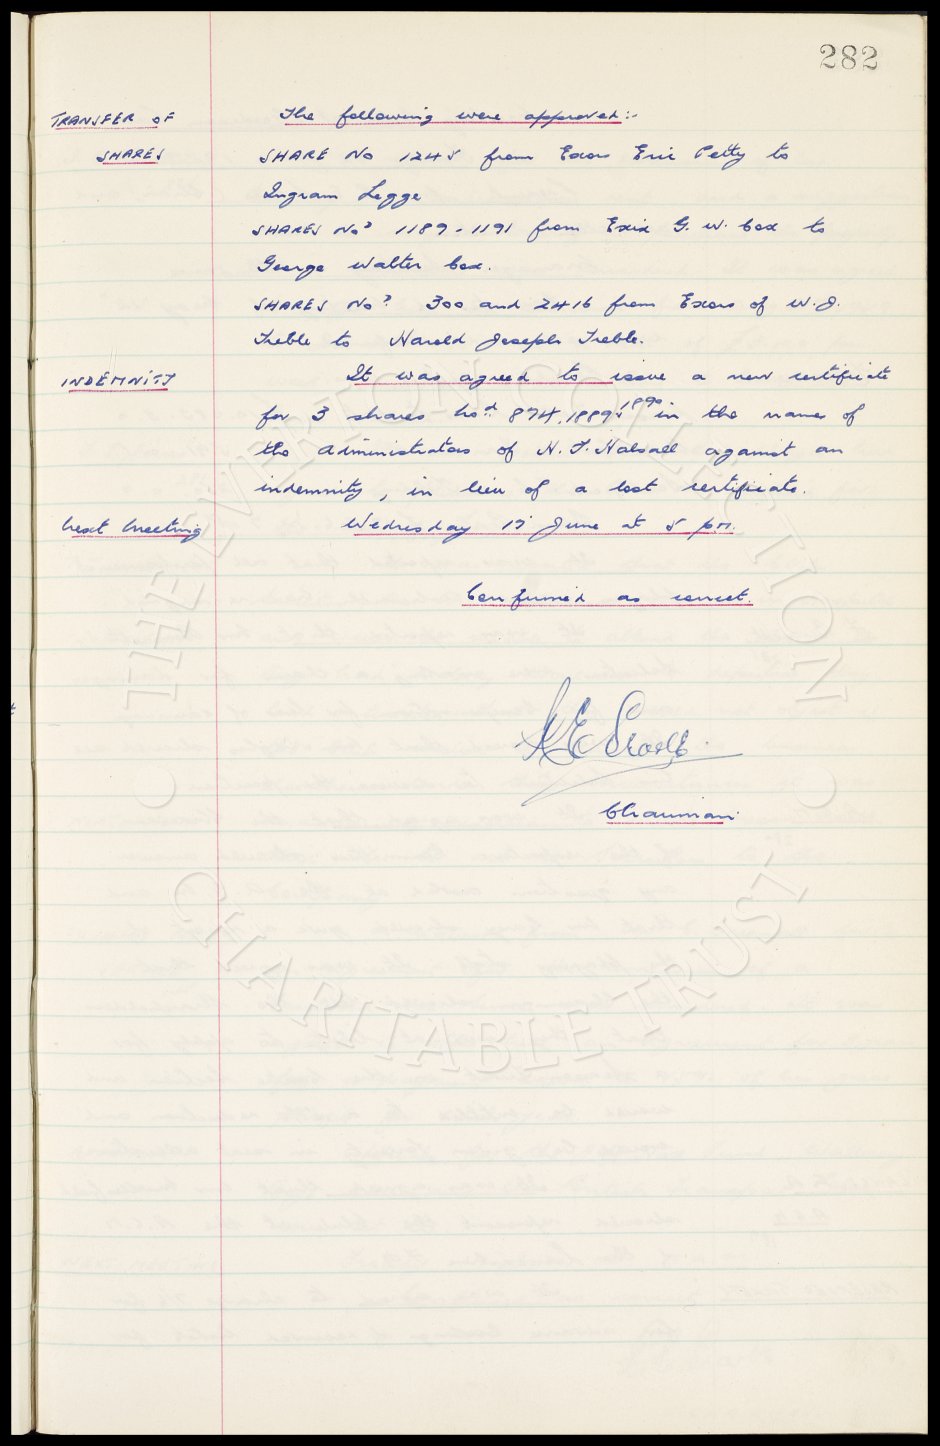 282
TRANSFER OF
SHARES
The following were approved:-
SHARE No 1245 from Exors Eric Petty to
Ingram Legge
SHARES Nos 1189-1191 from Exix G. W. Cox to
George Walter Cox.
SHARES Nos 300 and 2416 from Exors of W. J.
Treble to Harold Joseph Treble.
INDEMNITY
It was agreed to issue a new certificate
for 3 shares nos 874, 1889, 1890 in the names of
the Administrators of H. T. Halsall against an
indemnity, in lieu of a lost certificate.
Next Meeting
Wednesday June at 5 pm.
Confirmed as correct.
Chairman
© THE EVERTON COLLECTION ©
CHARITABLE TRUST